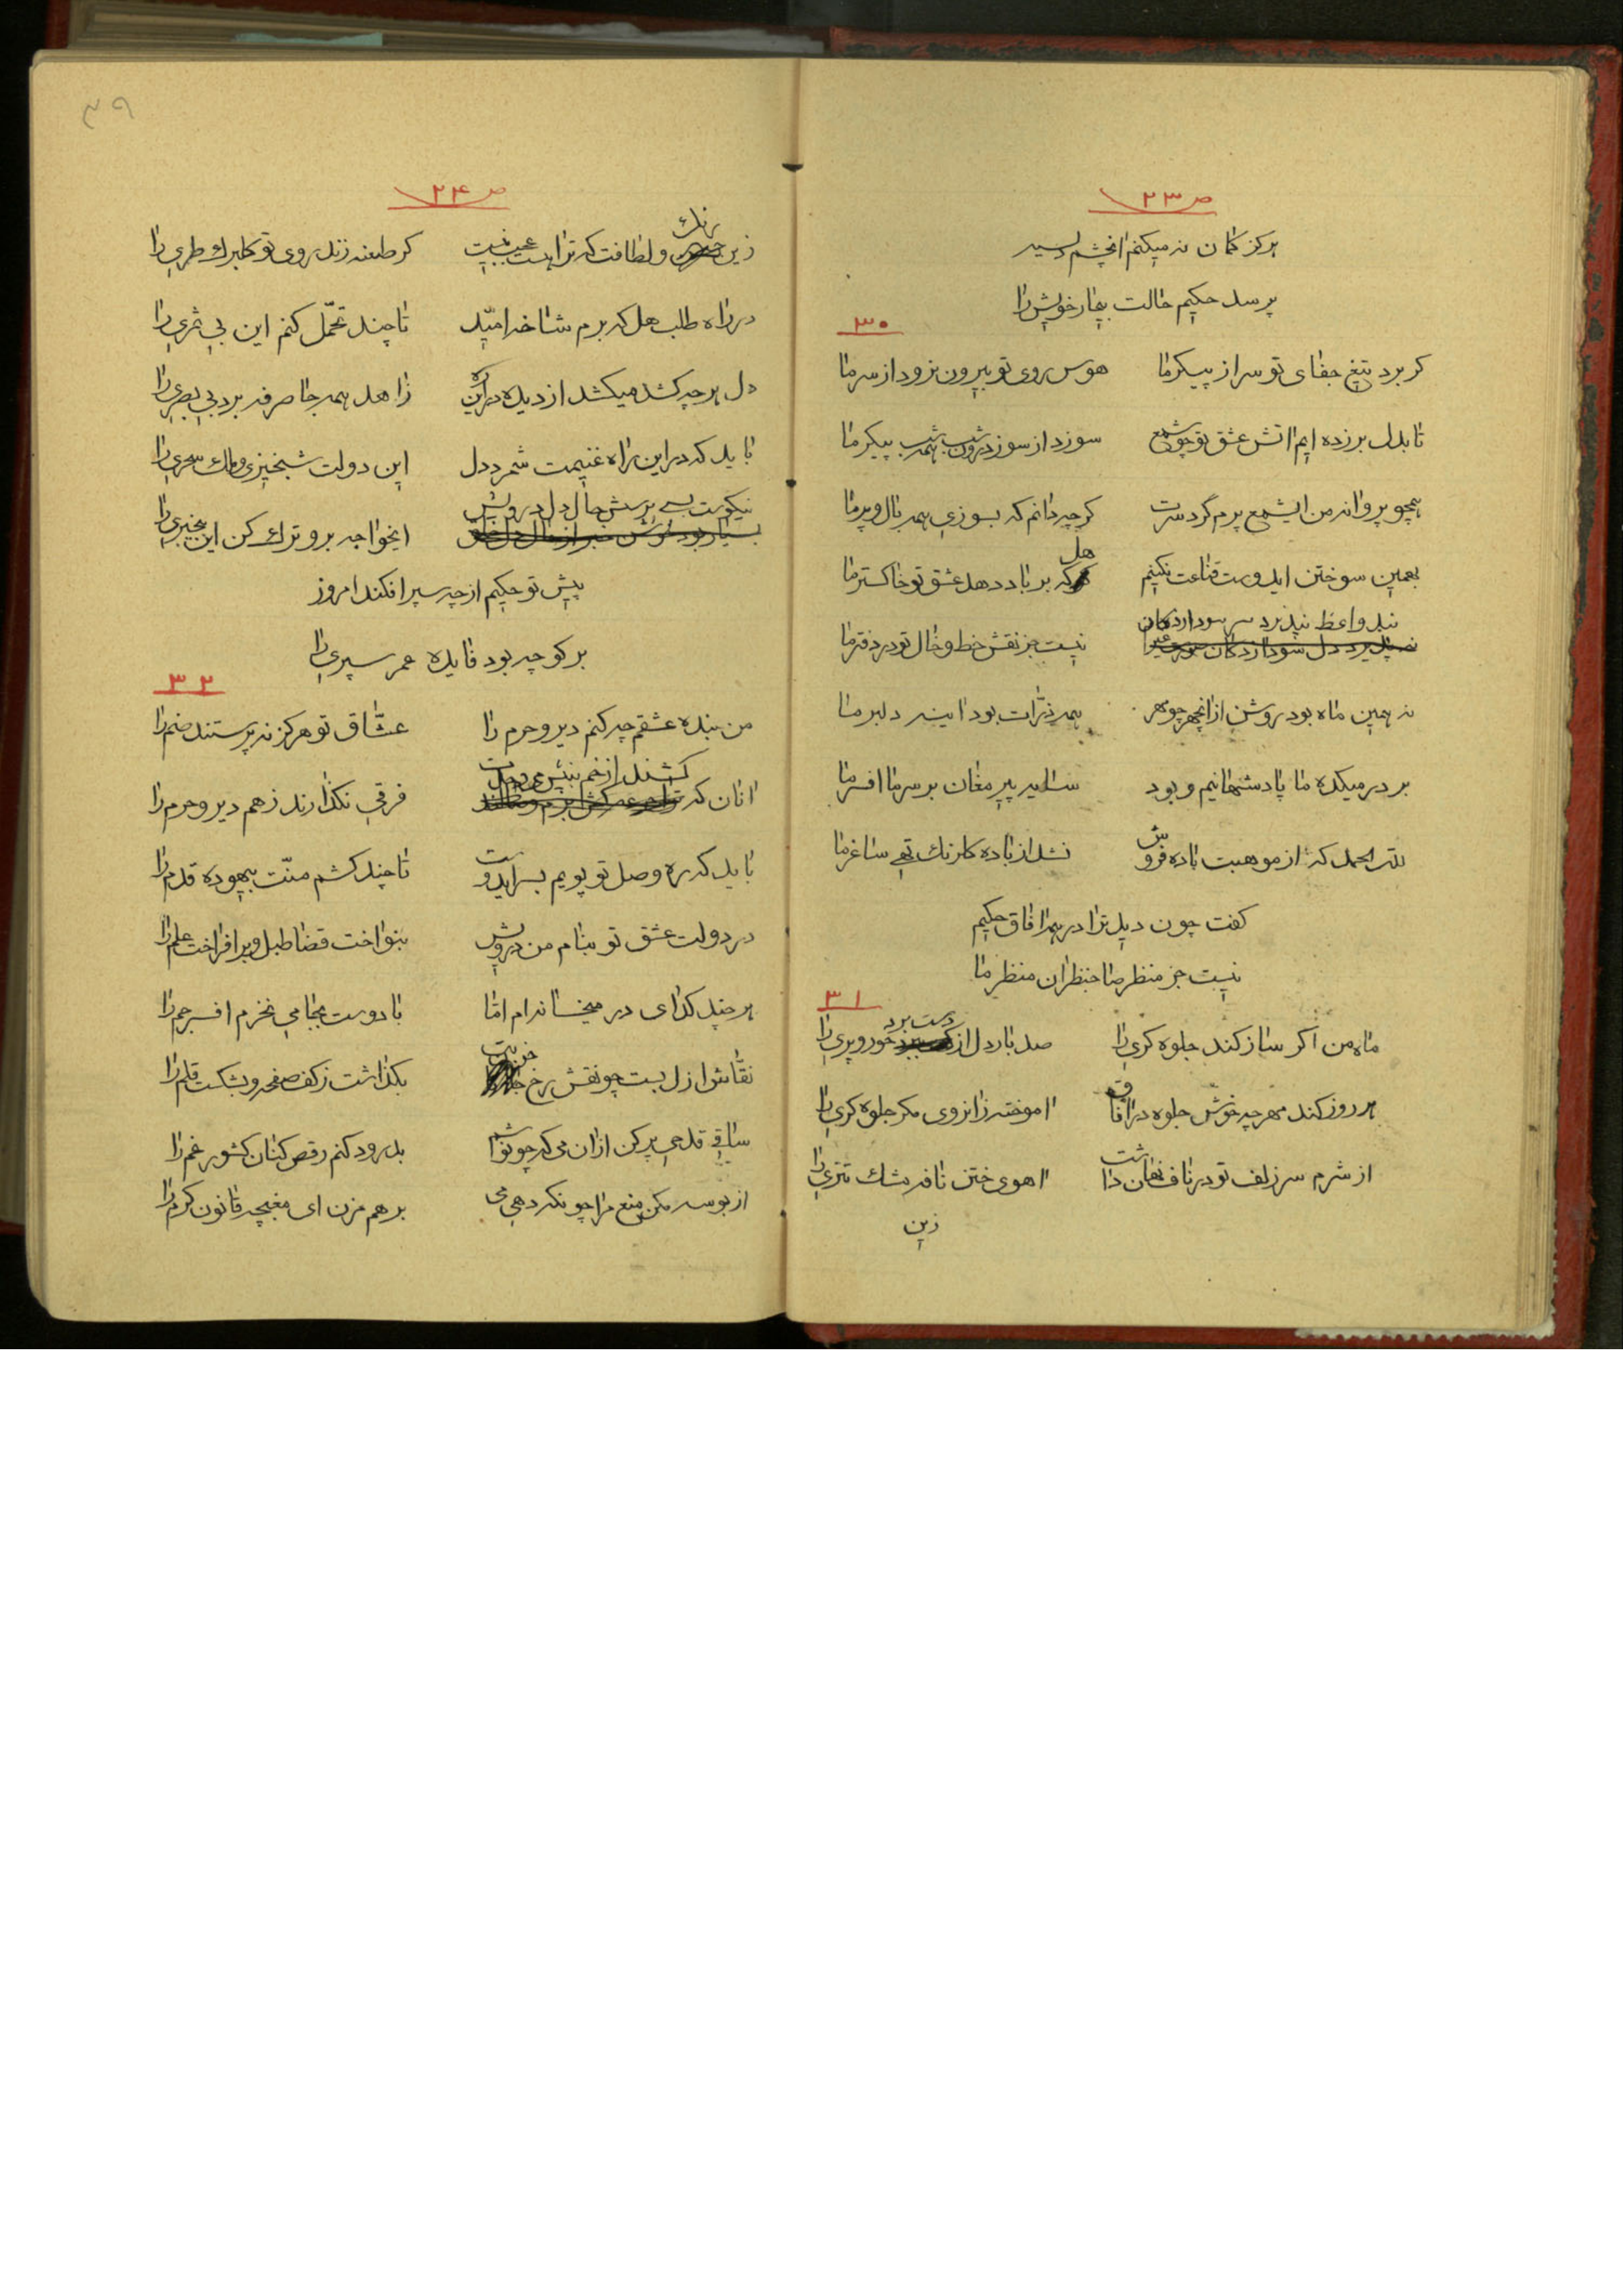 ص ۲۳
هرکز کمان نه میکنم انچشم پر سید
پرسد حکیم حالت بیمار خویش را
۳۰
کر برد تیغ جفای تو سر از پیکر ما هوس روی تو بیرون نرود از سر ما
تا بدل بر زده ایم اتش عشق تو چو شمع سوزد از سوز درون شب همه شب پیکر ما
همچو پروانه من ایشمع پرم گرد سرت کر چه دانم که بسوزی همه بال و پر ما
بهمین سوختن ایدوست قناعت نکنیم هل که بر باد دهد عشق تو خاکستر ما
پند واعظ نپذیرد سر سودا زدکان
نیست جز نقش خط و خال تو در دفتر ما
نه همین ماه بود روشن از انچهر چو مهر همه ذرات بود اینه دلبر ما
بر در میکده ما پادشهانیم و بود سایه پیر مغان بر سر ما افسر ما
لله الحمد که از موهبت باده فروش نشد از باده کلرنک تهی ساغر ما
کفت چون دید ترا در همه افاق حکیم
نیست جز منظر صاحبنظران منظر ما
۳۱
ماه من اکر ساز کند جلوه کری را صد بار دل از دست برد حور و پری را
هر روز کند مهر چه خوش جلوه در افاق اموخته زانروی مکر جلوه کری را
از شرم سر زلف تو در ناف نهان داشت اهوی ختن نافه مشک تتری را
زین
۳۹
ص ۲۴
زین رنک و لطافت که ترا هست عجب نیست کر طعنه زند روی تو کلبرک طری را
در راه طلب هل که برم شاخ امید تا چند تحمل کنم این بی ثمری را
دل هر چه کشد میکشد از دیده در این ره زاهد همه جا صرفه برد بی بصری را
باید که در این راه غنیمت شمرد دل این دولت شبخیزی و ملک سحری را
نیکوست بسی پرسش حال دل درویش
ایخواجه برو ترک کن این بیخبری را
پیش تو حکیم از چه سپر افکند امروز
بر کو چه بود فایده عمر سپری را
۳۲
من بنده عشقم چه کنم دیر و حرم را عشاق تو هرکز نه پرستند صنم را
انان که کشند از خم
فرقی نکذارند ز هم دیر و حرم را
باید که ره وصل تو پویم بسر ایدوست تا چند کشم منت بیهوده قدم را
در دولت عشق تو بنام من درویش بنواخت قضا طبل و بر افراخت علم را
هر چند کدای در میخانه ام اما با دوست بجامی نخرم افسر جم را
نقاش ازل بست چو نقش رخ خوبت بکذاشت ز کف صفحه و بشکست قلم را
ساقی قدحی پر کن از ان می که چو نوشم بدرود کنم رقص کنان کشور غم را
از بوسه مکن منع مرا چونکه دهی می بر هم مزن ای مغبچه قانون کرم را